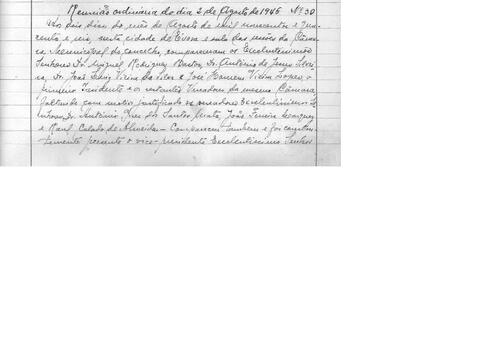 Reunião ordinária do dia 2 de Agosto de 1945 Nº 30
Aos dois dias do mês de Agosto de mil novecentos e qua-
renta e, nesta cidade de Évora e sala das sessões da Câma-
ra Municipal do concelho, compareceram os Excelentíssimos
Senhores Dr. Miguel Rodrigues Bastos, Dr. António de Jesus
Dr. José Luiz Vieira da Silva e José Homem Vieira, o
primeiro Presidente e os restantes Vereadores da mesma Câmara
Faltando com motivo justificado os vereadores Excelentíssimos Se-
nhores Dr. António dos Santos, João Pereira
e Calado de Almeida. - Compareceu também e foi constan-
temente presente o vice-presidente Excelentíssimo Senhor